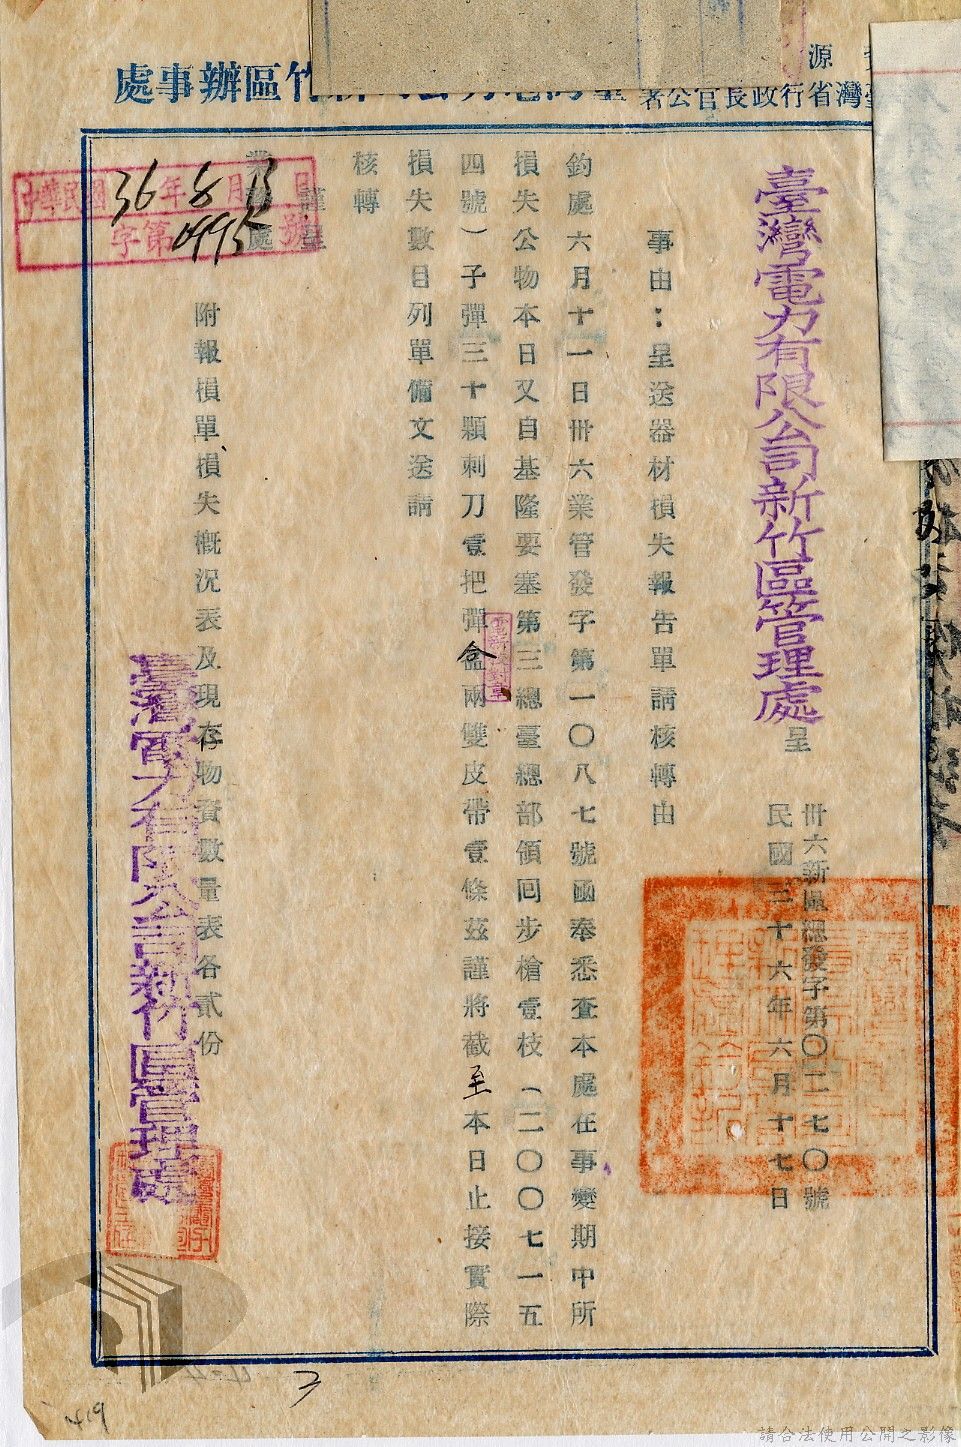 源
臺灣省行政長官公署
竹區辦事處
臺灣電力有限公司新竹區管理處
呈
卅六新區總發字第〇二七〇號
民國三十六年六月十七日
事由：呈送器材損失報告單請核轉由
鈞處六月十一日卅六業管發字第一〇八七號函奉悉查本處在事變期中所
損失公物本日又自基隆要塞第三總臺總部領回步槍壹枝（二〇〇七一五
四號）子彈三十顆刺刀壹把彈盒兩雙皮帶壹條茲謹將截至本日止接實際
損失數目列單備文送請
核轉
謹呈
業務處
附報損單損失概況表及現存物資數量表各貳份
臺灣電力有限公司新竹區管理處
中華民國36年8月13日
字第 號
3
419
請合法使用公開之影像